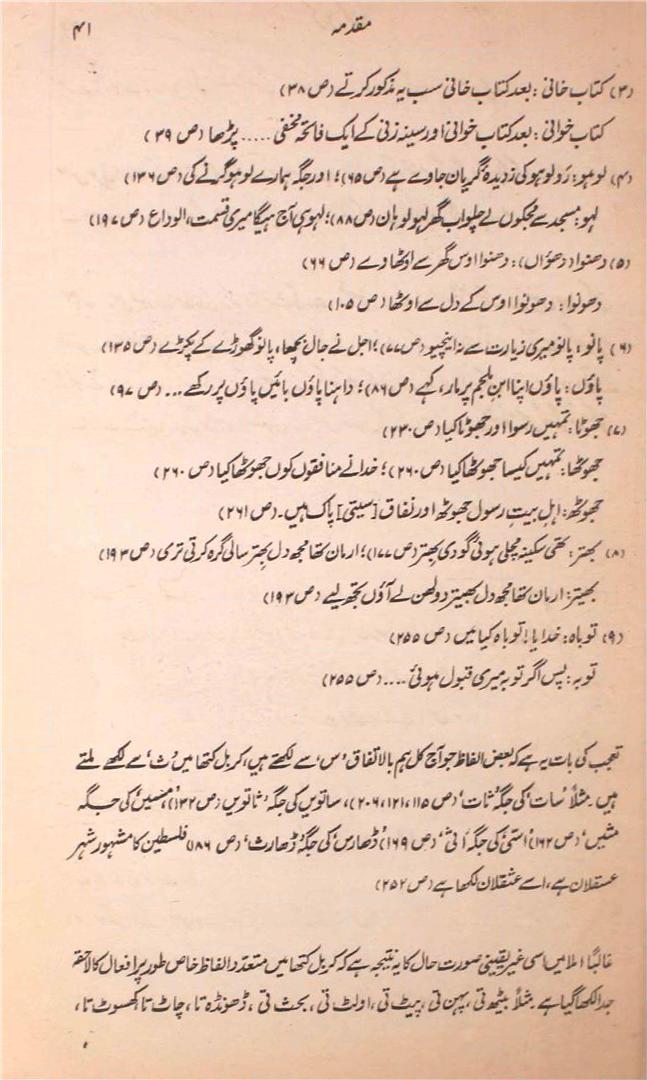 مقدمہ ۴۱
(۳) کتاب خانی : بعد کتاب خانی سب یہ مذکور کرتے (ص ۳۸)
کتاب خوانی : بعد کتاب خوانی اور سینہ زنی کے ایک فاتحۂ مخفی ..... پڑھا (ص ۳۹)
(۴) لوہو : رَو لوہو کی زدیدۂ گریان جاوے ہے (ص ۶۵)؛ اور جگہ ہمارے لوہو گرنے کی (ص ۱۳۶)
لہو : مسجد سے مجکوں لے چلو اب گھر لہو لوہان (ص ۸۸)؛ لہو ہی آج ہیگا میری قسمت، الوداع (ص ۱۹۷)
(۵) دھنوا (دھوٗاں) : دھنوا اوس گھر سے اوٹھا وے (ص ۶۶)
دھونوا : دھونوا اوس کے دل سے اوٹھا (ص ۱۰۵)
(۶) پانو : پانو میری زیارت سے نہ اینچیو (ص ۷۷)؛ اجل نے جال بچھا، پانو گھوڑے کے پکڑے (ص ۱۳۵)
پاؤں : پاؤں اپنا ابن ملجم پر مار، کہے (ص ۸۶)؛ داہنا پاؤں بائیں پاؤں پر رکھے ... (ص ۹۷)
(۷) جھوٹا : تمہیں رسوا اور جھوٹا کیا (ص ۲۳۰)
جھوٹھا : تمہیں کیسا جھوٹھا کیا (ص ۲۶۰)؛ خدا نے منافقوں کوں جھوٹھا کیا (ص ۲۶۰)
جھوٹھ : اہل بیتِ رسول جھوٹھ اور نفاق [سیتی] پاک ہیں۔ (ص ۲۶۱)
(۸) بھتر : تھی سکینہ مچلی ہوئی گودی بھتر (ص ۱۷۷)؛ ارمان تھا مجھ دل بھتر سالی گرہ کرتی تری (ص ۱۹۳)
بھیتر : ارمان تھا مجھ دل بھیتر دولھن لے آؤں تجھ لیے (ص ۱۹۳)
(۹) توباہ : خدایا! توباہ کیا میں (ص ۲۵۵)
توبہ : پس اگر توبہ میری قبول ہوئی .... (ص ۲۵۵)
تعجب کی بات یہ ہے کہ بعض الفاظ جو آج کل ہم بالاتفاق 'س' سے لکھتے ہیں، کربل کتھا میں 'ث' سے لکھے ملتے
ہیں۔ مثلاً 'سات' کی جگہ 'ثات' (ص ۱۱۵، ۱۲۱، ۲۰۶)، ساتویں کی جگہ 'ثاتویں' (ص ۱۳۲)، 'منسیں' کی جگہ
'مثیں' (ص ۱۶۲) 'اسّی' کی جگہ 'اثی' (ص ۱۶۹) 'ڈھارس' کی جگہ 'ڈھارث' (ص ۱۸۶) فلسطین کا مشہور شہر
عسقلان ہے، اسے عثقلان لکھا ہے (ص ۲۵۲)
غالباً املا میں اسی غیر یقینی صورت حال کا یہ نتیجہ ہے کہ کربل کتھا میں متعدد الفاظ خاص طور پر افعال کا لاحقہ
جدا لکھا گیا ہے۔ مثلاً بیٹھ تی، پہن تی، پیٹ تی، اولٹ تی، بحث تی، ڈھونڈھ تا، چاٹ تا، کھسوٹ تا،